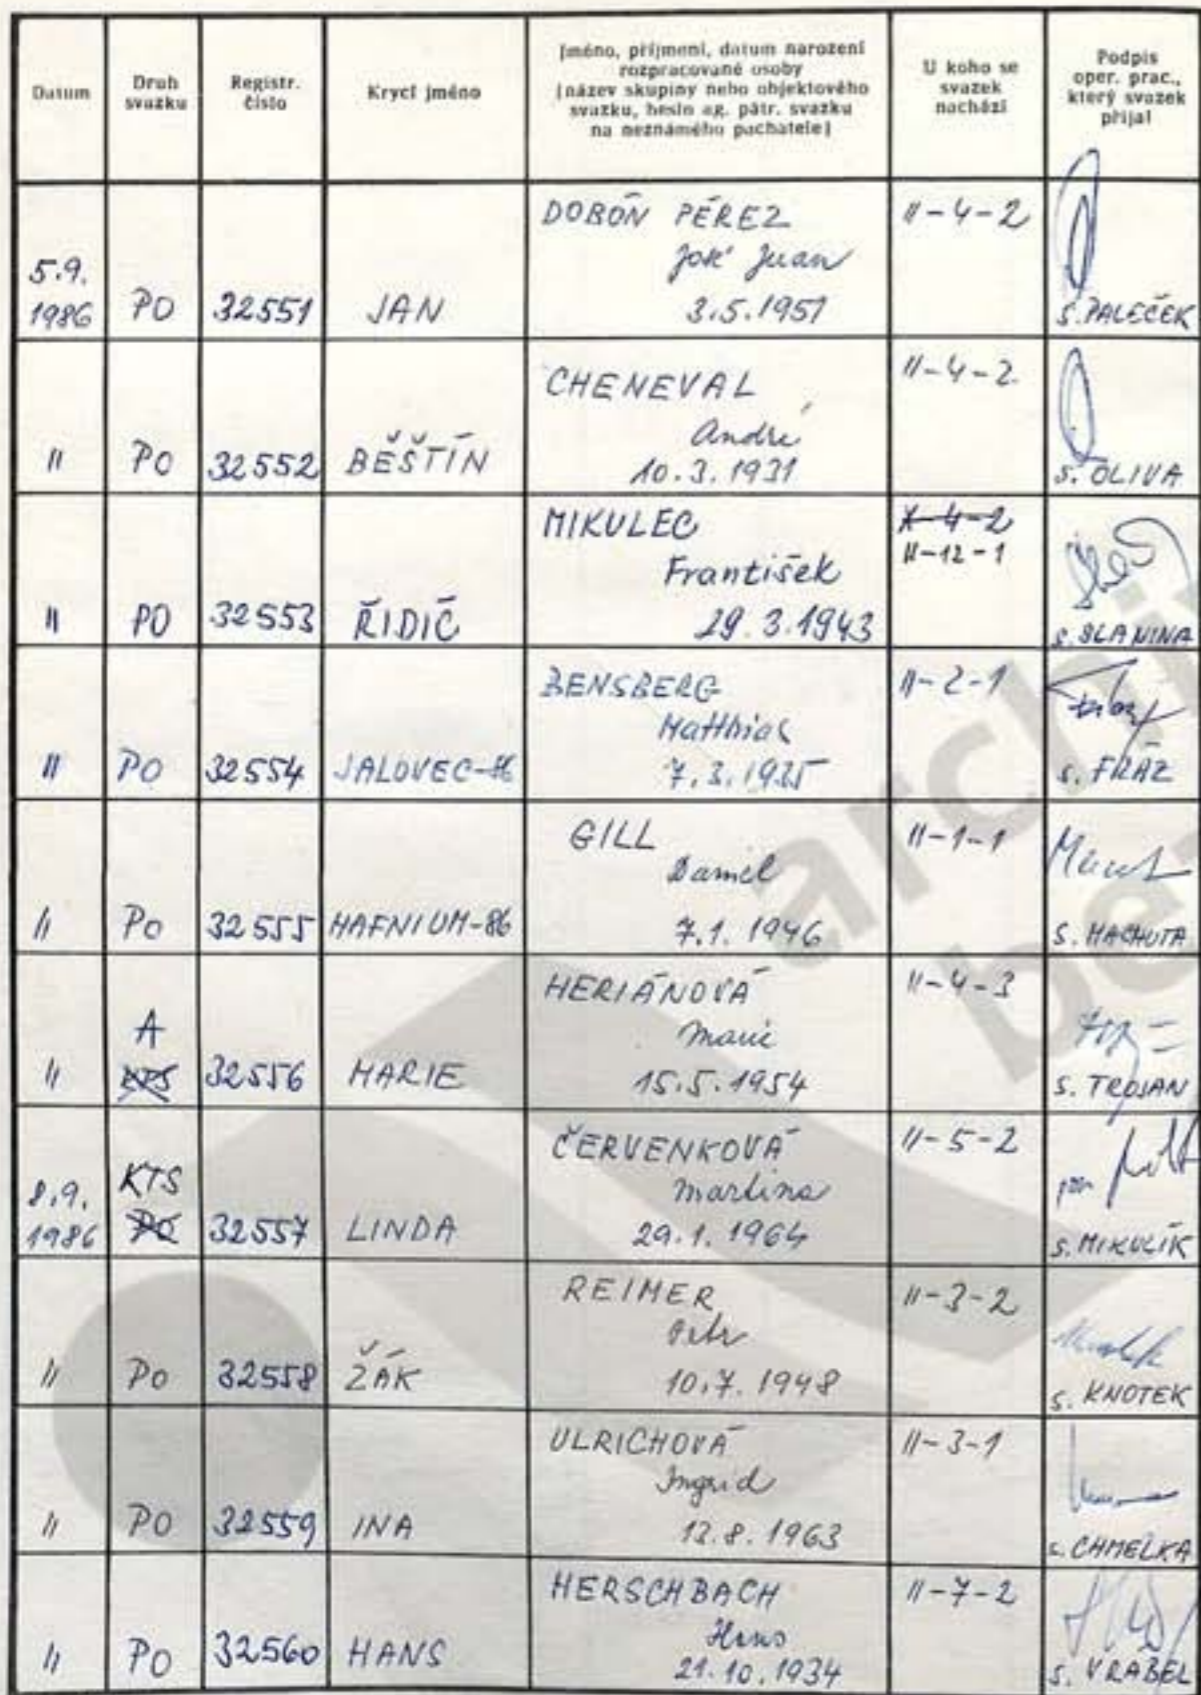 Datum
Druh
svazku
Registr.
číslo
Krycí jméno
Jméno, příjmení, datum narození
rozpracované osoby
(název skupiny nebo objektového
svazku, heslo ag. pátr. svazku
na neznámého pachatele)
U koho se
svazek
nachází
Podpis
oper. prac.,
který svazek
přijal
5.9.
1986
PO
32551
JAN
DOBÓN PÉREZ
José Juan
3.5.1951
II-4-2
S. PALEČEK
II
PO
32552
BĚŠTÍN
CHENEVAL
André
10.3.1931
II-4-2
S. OLIVA
II
PO
32553
ŘIDIČ
MIKULEC
František
29.3.1943
X-4-2
II-12-1
S. SLANINA
II
PO
32554
JALOVEC-86
BENSBERG
Matthias
7.3.1935
II-2-1
S. FRÁZ
II
PO
32555
HAFNIUM-86
GILL
Daniel
7.1.1946
II-1-1
S. MACHUTA
II
A
KTS
32556
MARIE
HERIÁNOVÁ
Marie
15.5.1954
II-4-3
S. TROJAN
8.9.
1986
KTS
PO
32557
LINDA
ČERVENKOVÁ
Martina
29.1.1964
II-5-2
S. MIKULÍK
II
PO
32558
ŽÁK
REIMER
Petr
10.7.1948
II-3-2
S. KNOTEK
II
PO
32559
INA
ULRICHOVÁ
Ingrid
12.8.1963
II-3-1
S. CHMELKA
II
PO
32560
HANS
HERSCHBACH
Hans
21.10.1934
II-7-2
S. VRÁBEL